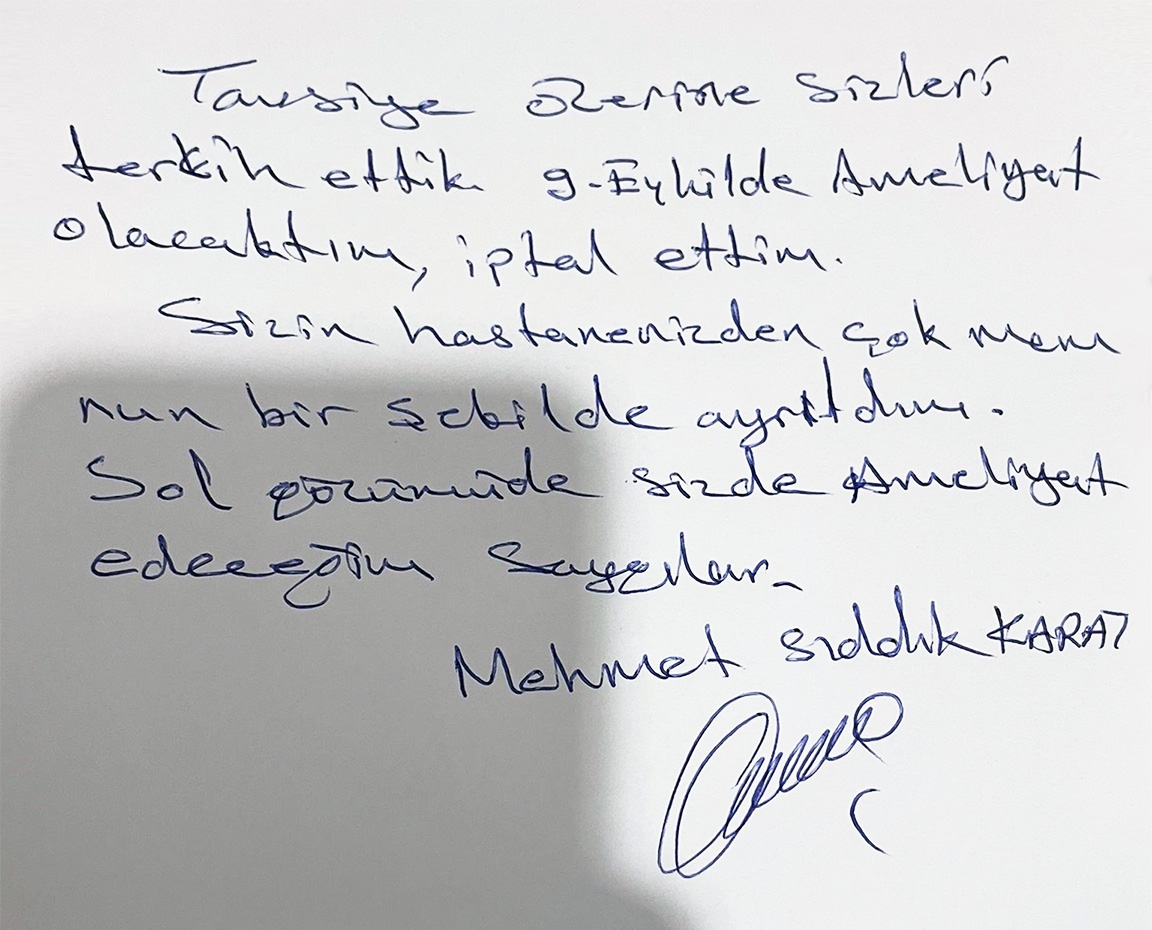 Tavsiye üzerine sizleri
terkih ettik 9-Eylülde Ameliyat
olacaktım, iptal ettim.
Sizin hastanenizden çok mem
nun bir şekilde ayrıldım.
Sol gözümüde sizde Ameliyat
edeceğim Saygılar-
Mehmet Sıddık KARAT